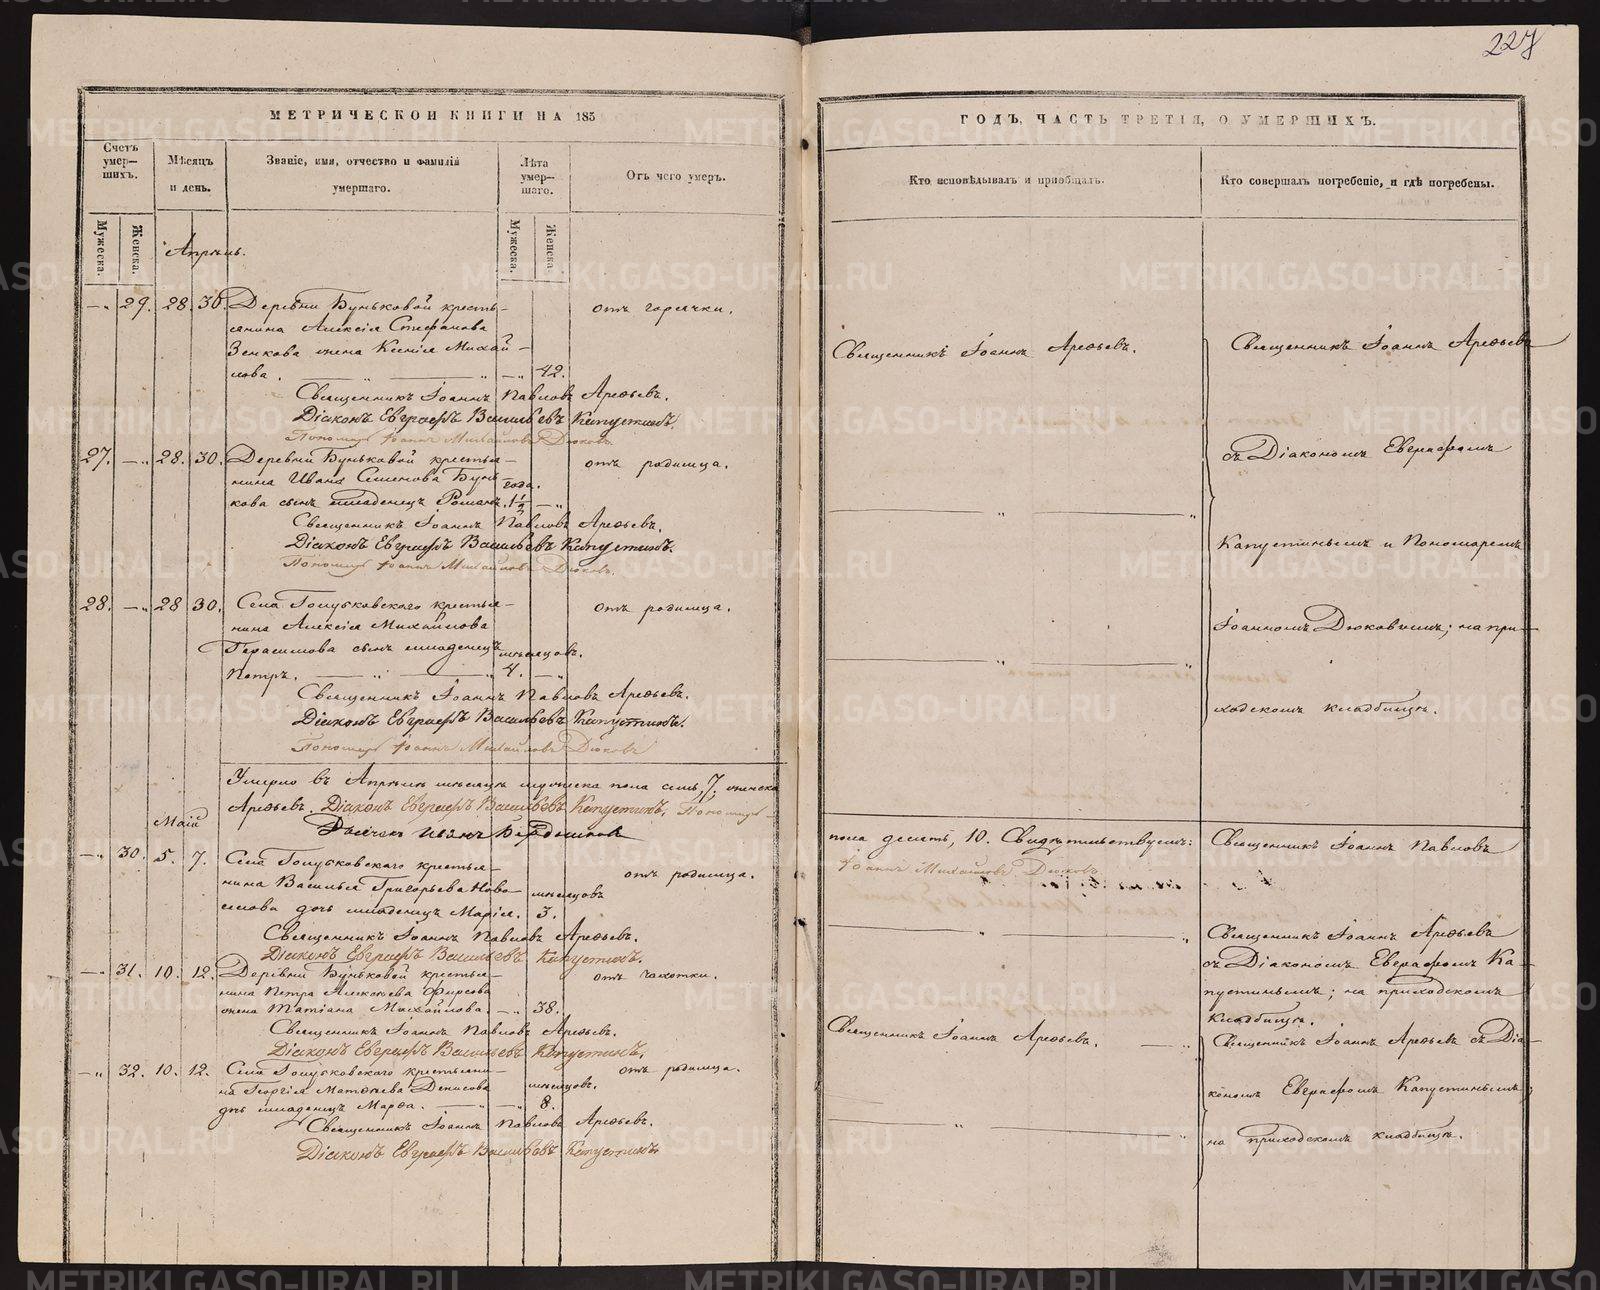 227
МЕТРИЧЕСКОЙ КНИГИ НА 185
Счетъ умер-шихъ.
Мѣсяцъ и день.
Званіе, имя, отчество и фамилія умершаго.
Лѣта умер-шаго.
Отъ чего умеръ.
Мужеска.
Женска.
Мужеска.
Женска.
Апрѣль.
29. 28. 30. Деревни Буньковой кресть-
янина Алексія Стефанова
Зенкова жена Ксенія Михай-
лова. 42.
отъ горячки.
Священникъ Іоаннъ Павловъ Арефьевъ.
Діаконъ Евграфъ Васильевъ Капустинъ.
Пономарь Іоаннъ Михайловъ Дюковъ
27. 28. 30. Деревни Буньковой крестья-
нина Ивана Семенова Бунь-
кова сынъ младенецъ Романъ. года. 1½
отъ родимца.
Священникъ Іоаннъ Павловъ Арефьевъ.
Діаконъ Евграфъ Васильевъ Капустинъ.
Пономарь Іоаннъ Михайловъ Дюковъ.
28. 28 30. Села Голубковскаго крестья-
нина Алексія Михайлова
Герасимова сынъ младенецъ мѣсяцовъ.
Петръ. 4.
отъ родимца.
Священникъ Іоаннъ Павловъ Арефьевъ.
Діаконъ Евграфъ Васильевъ Капустинъ.
Пономарь Іоаннъ Михайловъ Дюковъ
Умерло въ Апрѣлѣ мѣсяцѣ мужеска пола семь, 7, женска
Арефьевъ. Діаконъ Евграфъ Васильевъ Капустинъ, Пономарь
Дьячекъ Иванъ
Маій
30. 5. 7. Села Голубковскаго крестья-
нина Василья Григорьева Ново-
селова дочь младенецъ Марія. мѣсяцовъ 3.
отъ родимца.
Священникъ Іоаннъ Павловъ Арефьевъ.
Діаконъ Евграфъ Васильевъ Капустинъ.
31. 10. 12. Деревни Буньковой крестья-
нина Петра Алексѣева Фирсова
жена Татіана Михайлова. 38.
отъ чахотки.
Священникъ Іоаннъ Павловъ Арефьевъ.
Діаконъ Евграфъ Васильевъ Капустинъ.
32. 10. 12. Села Голубковскаго крестьяни-
на Георгія Матфѣева Денисова
дочь младенецъ Марфа. мѣсяцовъ. 8.
отъ родимца.
Священникъ Іоаннъ Павловъ Арефьевъ.
Діаконъ Евграфъ Васильевъ Капустинъ
ГОДЪ, ЧАСТЬ ТРЕТІЯ, О УМЕРШИХЪ.
Кто исповѣдывалъ и пріобщалъ.
Кто совершалъ погребеніе, и гдѣ погребены.
Священникъ Іоаннъ Арефьевъ.
Священникъ Іоаннъ Арефьевъ
съ Діакономъ Евграфомъ
Капустинымъ и Пономаремъ
Іоанномъ Дюковымъ; на при-
ходскомъ кладбищѣ.
пола десять, 10. Свидѣтельствуемъ:
Священникъ Іоаннъ Павловъ
Іоаннъ Михайловъ Дюковъ
Священникъ Іоаннъ Арефьевъ
съ Діакономъ Евграфомъ Ка-
пустинымъ; на приходскомъ
кладбищѣ.
Священникъ Іоаннъ Арефьевъ.
Священникъ Іоаннъ Арефьевъ съ Діа-
кономъ Евграфомъ Капустинымъ;
на приходскомъ кладбищѣ.
METRIKI.GASO-URAL.RU